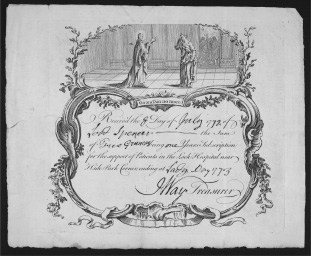 Received the 8 Day of July 1772 of
Lord Spencer the Sum
of Five Guineas being one Years Subscription
for the support of Patients in the Lock Hospital near
Hide Park Corner ending at Lady Day 1773
JWay Treasurer